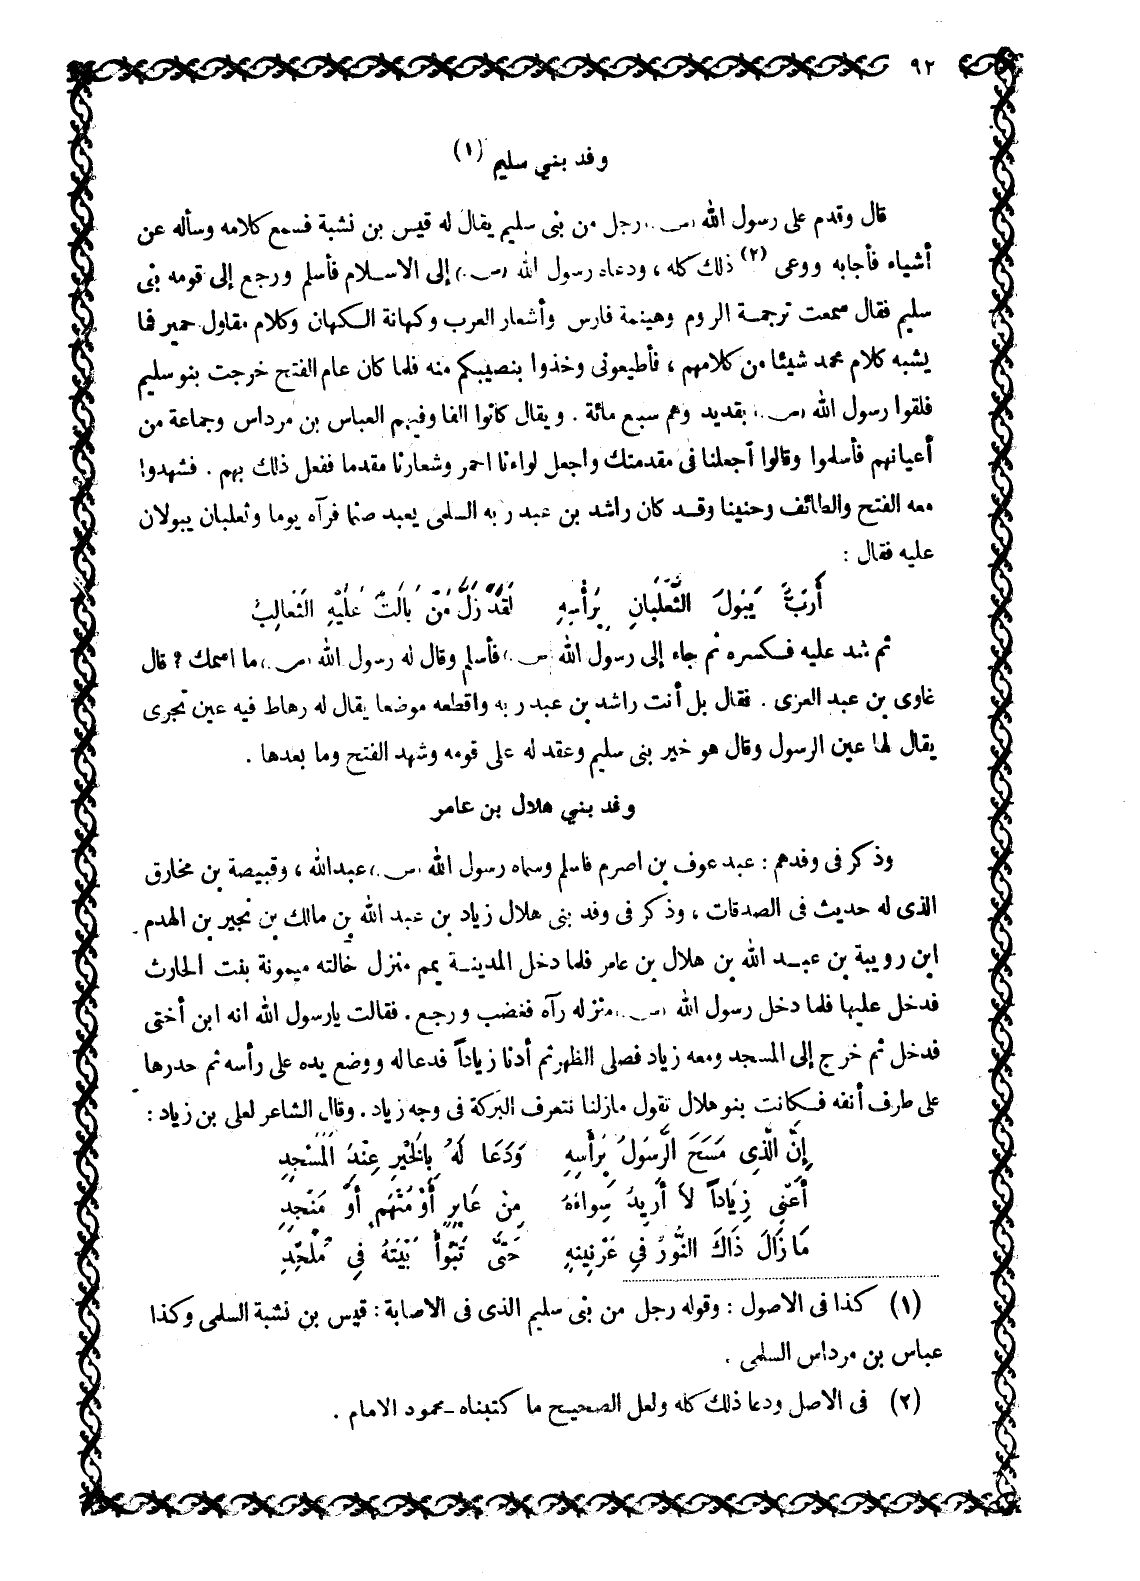 ٩٢
وفد بني سليم (١)
قال وقدم على رسول الله (ص.) رجل من بنى سليم يقال له قيس بن نشبة فسمع كلامه وسأله عن
أشياء فأجابه ووعى (٢) ذلك كله ، ودعاه رسول الله (ص.) إلى الاسلام فأسلم ورجع إلى قومه بنى
سليم فقال سمعت ترجمة الروم وهينمة فارس وأشعار العرب وكهانة الكهان وكلام مقاول حمير فما
يشبه كلام محمد شيئا من كلامهم ، فأطيعونى وخذوا بنصيبكم منه فلما كان عام الفتح خرجت بنو سليم
فلقوا رسول الله (ص.) بقديد وهم سبع مائة . ويقال كانوا الفا وفيهم العباس بن مرداس وجماعة من
أعيانهم فأسلموا وقالوا أجعلنا فى مقدمتك واجعل لواءنا احمر وشعارنا مقدما ففعل ذلك بهم . فشهدوا
معه الفتح والطائف وحنينا وقد كان راشد بن عبد ربه السلمى يعبد صنما فرآه يوما وثعلبان يبولان
عليه فقال :
أَرَبٌّ يَبُولُ الثَّعْلَبَانِ بِرَأْسِهِ لَقَدْ ذَلَّ مَنْ بَالَتْ عَلَيْهِ الثَعَالِبُ
ثم شد عليه فكسره ثم جاء إلى رسول الله (ص.) فأسلم وقال له رسول الله (ص.) ما اسمك ؟ قال
غاوى بن عبد العزى . فقال بل أنت راشد بن عبد ربه واقطعه موضعا يقال له رهاط فيه عين تجرى
يقال لها عين الرسول وقال هو خير بنى سليم وعقد له على قومه وشهد الفتح وما بعدها .
وفد بني هلال بن عامر
وذكر فى وفدهم : عبد عوف بن اصرم فاسلم وسماه رسول الله (ص.) عبدالله ، وقبيصة بن مخارق
الذى له حديث فى الصدقات ، وذكر فى وفد بنى هلال زياد بن عبد الله بن مالك بن نجير بن الهدم
ابن رويبة بن عبد الله بن هلال بن عامر فلما دخل المدينة يمم منزل خالته ميمونة بفت الحارث
فدخل عليها فلما دخل رسول الله (ص.) منزله رآه فغضب ورجع . فقالت يارسول الله انه ابن أختى
فدخل ثم خرج إلى المسجد ومعه زياد فصلى الظهر ثم أدنا زياداً فدعا له ووضع يده على رأسه ثم حدرها
على طرف أنفه فكانت بنو هلال تقول مازلنا نتعرف البركة فى وجه زياد . وقال الشاعر لعلى بن زياد :
إنَّ الَّذِى مَسَحَ الرَّسُولُ بِرَأْسِهِ وَدَعَا لَهُ بِالْخَيْرِ عِنْدَ الْمَسْجِدِ
أَعْنِى زِيَاداً لاَ أُرِيدُ سِوَاءَهُ مِنْ عَابِرٍ أَوْ مُتْهِمٍ أَوْ مُنْجِدِ
مَا زَالَ ذَاكَ النُّورُ فِي عَرْنِينِهِ حَتَّى تَبَوَّأَ بَيْتَهُ فِي مُلْحَدِ
(١) كذا فى الاصول : وقوله رجل من بنى سليم الذى فى الاصابة : قيس بن نشبة السلمى وكذا
عباس بن مرداس السلمى .
(٢) فى الاصل ودعا ذلك كله ولعل الصحيح ما كتبناه ـ محمود الامام .